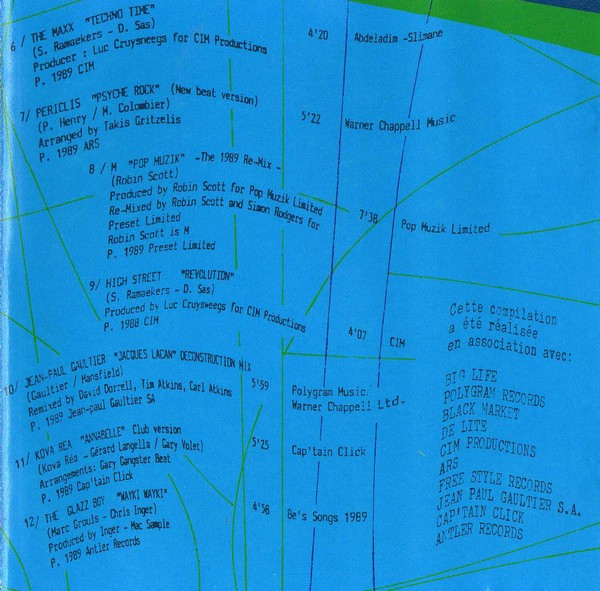 6 / THE MAXX "TECHNO TIME"
(S. Ramaekers - D. Sas)
Producer : Luc Cruysneegs for CIM Productions
P. 1989 CIM
4'20
Abdeladim -Slimane
7/ PERICLIS "PSYCHE ROCK" (New beat version)
(P. Henry / M. Colombier)
Arranged by Takis Gritzelis
P. 1989 ARS
5'22
Warner Chappell Music
8 / M "POP MUZIK" -The 1989 Re-Mix -
(Robin Scott)
Produced by Robin Scott for Pop Muzik Limited
Re-Mixed by Robin Scott and Simon Rodgers for
Preset Limited
Robin Scott is M
P. 1989 Preset Limited
7'38
Pop Muzik Limited
9/ HIGH STREET "REVOLUTION"
(S. Ramaekers - D. Sas)
Produced by Luc Cruysweegs for CIM Productions
P. 1988 CIM
4'07
CIM
10/ JEAN-PAUL GAULTIER "JACQUES LACAN" DECONSTRUCTION MIX
(Gaultier / Mansfield)
Remixed by David Dorrell, Tim Atkins, Carl Atkins
P. 1989 Jean-paul Gaultier SA
5'59
Polygram Music
Warner Chappell Ltd.
11/ KOVA REA "ANNABELLE" Club version
(Kova Réa - Gérard Langella / Gary Volet)
Arrangements: Gary Gangster Beat
P. 1989 Cap'tain Click
5'25
Cap'tain Click
12/ THE GLAZZ BOY "WAYKI WAYKI"
(Marc Grouls - Chris Inger)
Produced by Inger - Mac Sample
P. 1989 Antler Records
4'58
Be's Songs 1989
Cette compilation
a été réalisée
en association avec:
BIG LIFE
POLYGRAM RECORDS
BLACK MARKET
DE LITE
CIM PRODUCTIONS
ARS
FREE STYLE RECORDS
JEAN PAUL GAULTIER S.A.
CAP'TAIN CLICK
ANTLER RECORDS